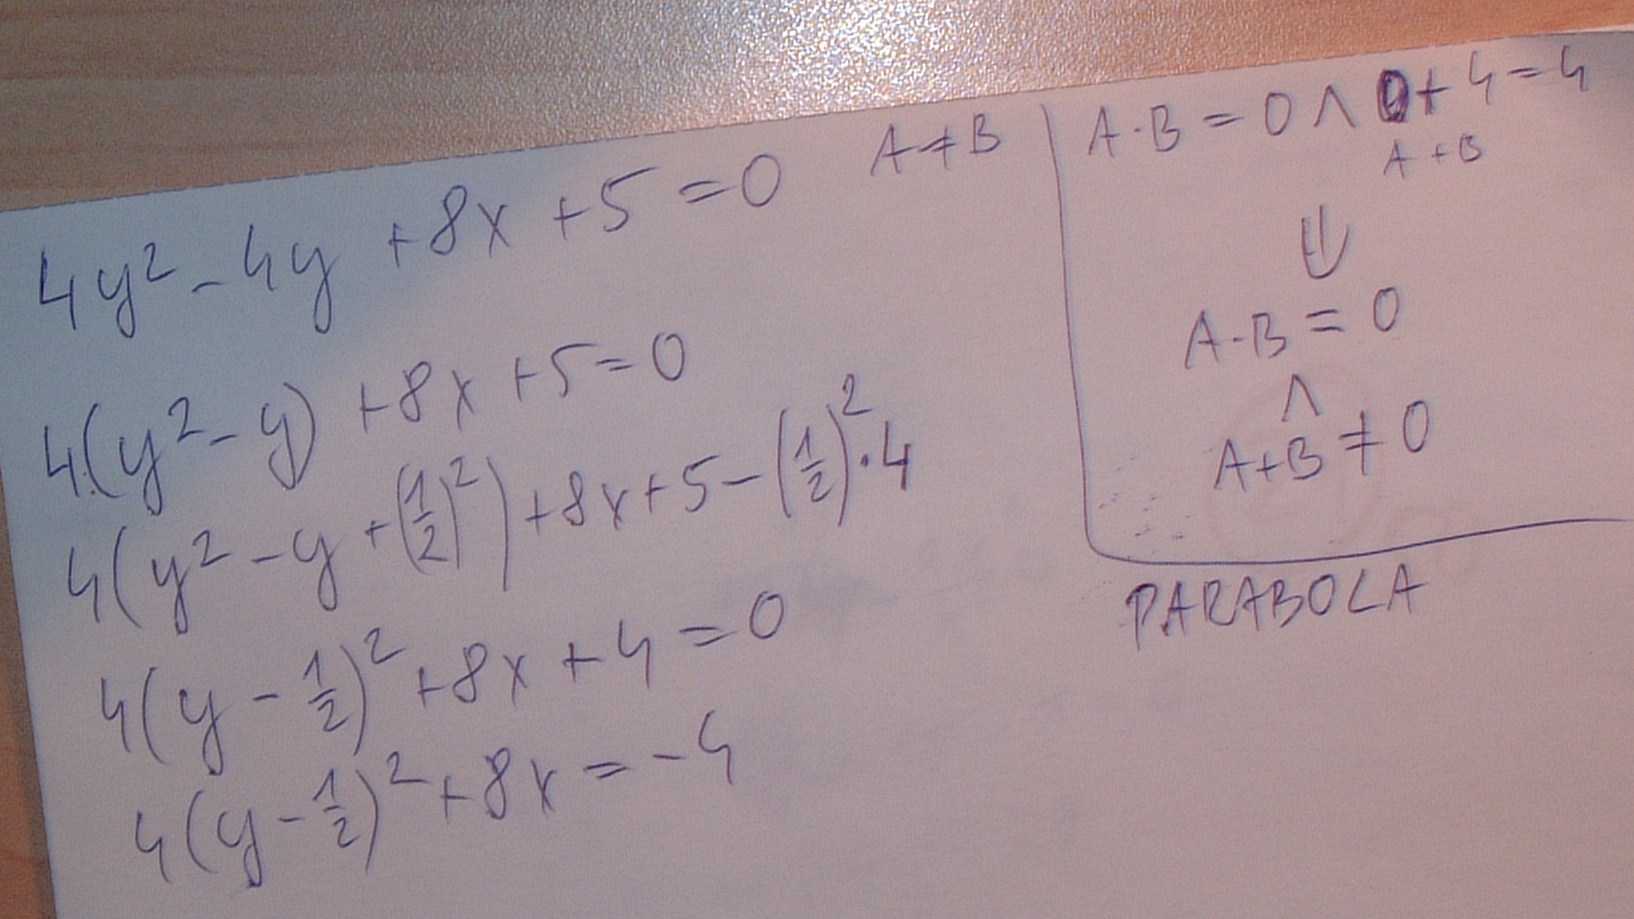 4y² - 4y + 8x + 5 = 0
4.(y² - y) + 8x + 5 = 0
4(y² - y + (1/2)²) + 8x + 5 - (1/2)² · 4
4(y - 1/2)² + 8x + 4 = 0
4(y - 1/2)² + 8x = -4
A ≠ B
A · B = 0 ∧ 0 + 4 = 4
A + B
⇓
A · B = 0
∧
A + B ≠ 0
PARABOLA